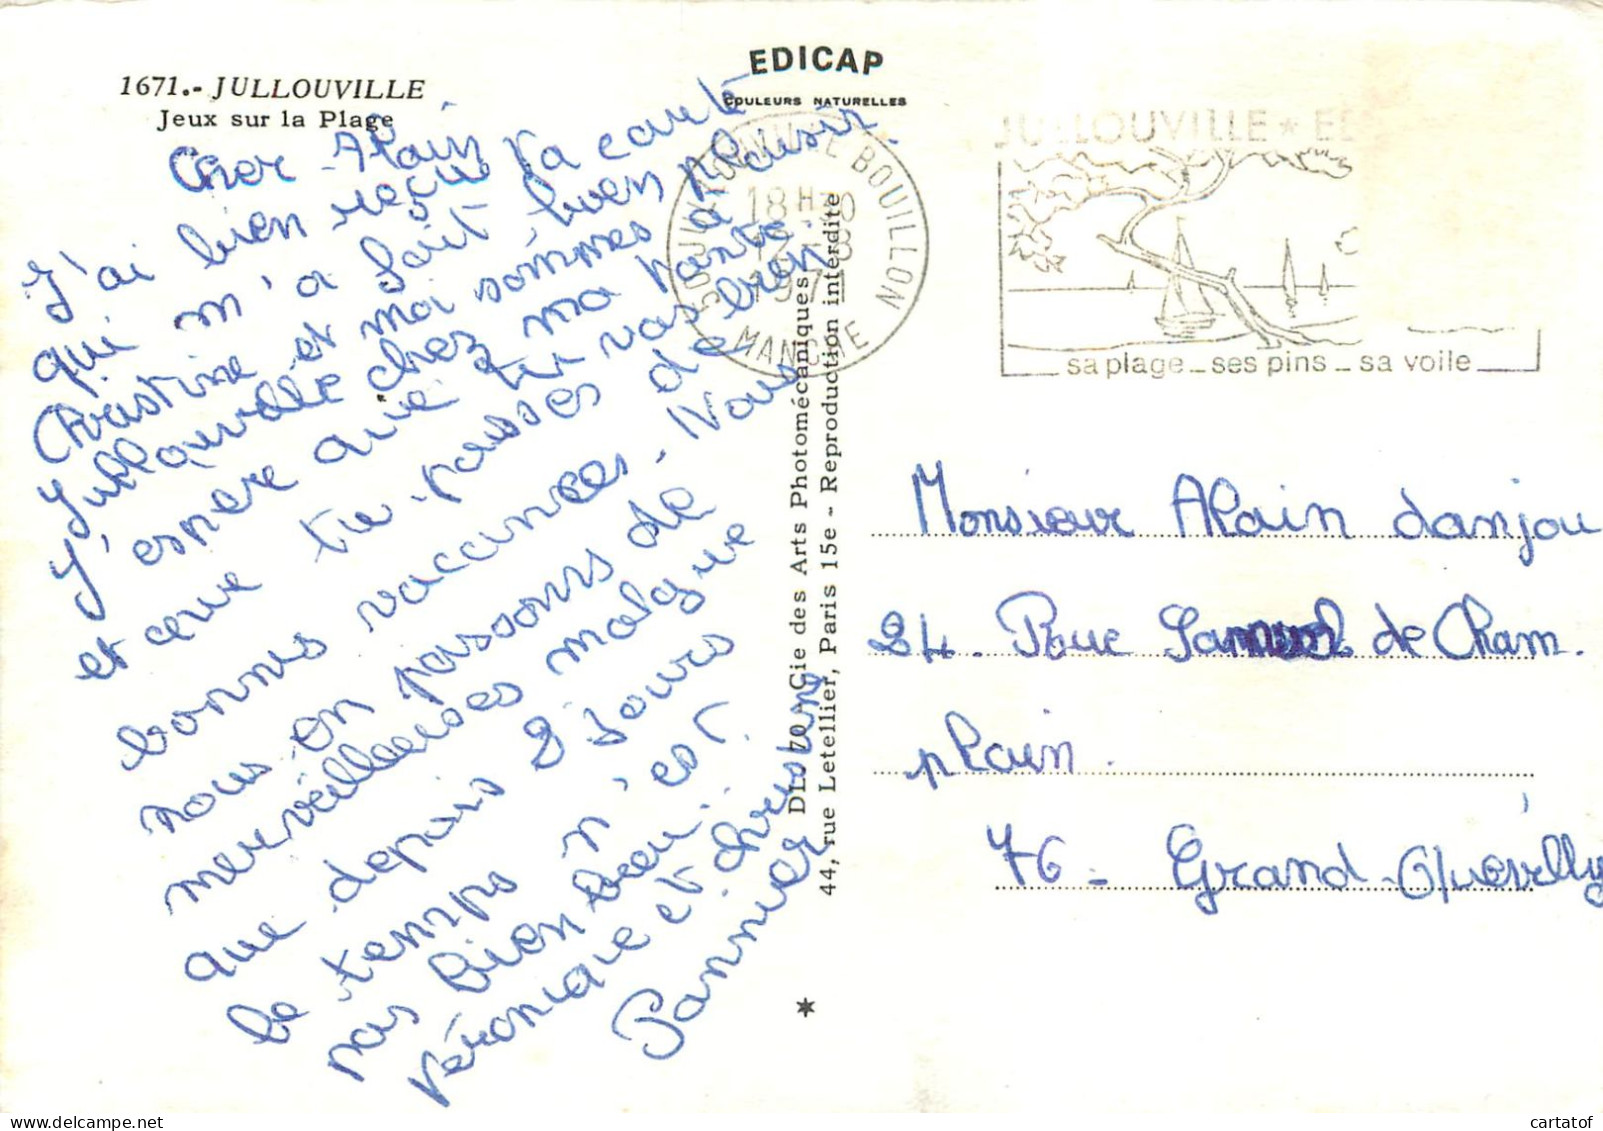 1671.- JULLOUVILLE
Jeux sur la Plage
EDICAP
COULEURS NATURELLES
Cher Alain
J'ai bien reçu ta carte
qui m'a fait bien plaisir.
Christine et moi sommes à
Jullouville chez ma tante.
J'espere que tu vas bien
et que tu passes de
bonnes vacances. Nous
nous en passons de
merveilleuses malgre
que depuis 2 jours
le temps n'est
pas bien beau.
Véronique et christine
Pannier
JULLOUVILLE BOUILLON
18H30
12-8
1971
MANCHE
JULLOUVILLE ★
sa plage _ ses pins _ sa voile
DL - 70 - Cie des Arts Photomécaniques
44, rue Letellier, Paris 15e - Reproduction interdite
Monsieur Alain danjou
24. Rue Samuel de Cham.
plain.
76 - Grand-Quévilly
cartatof